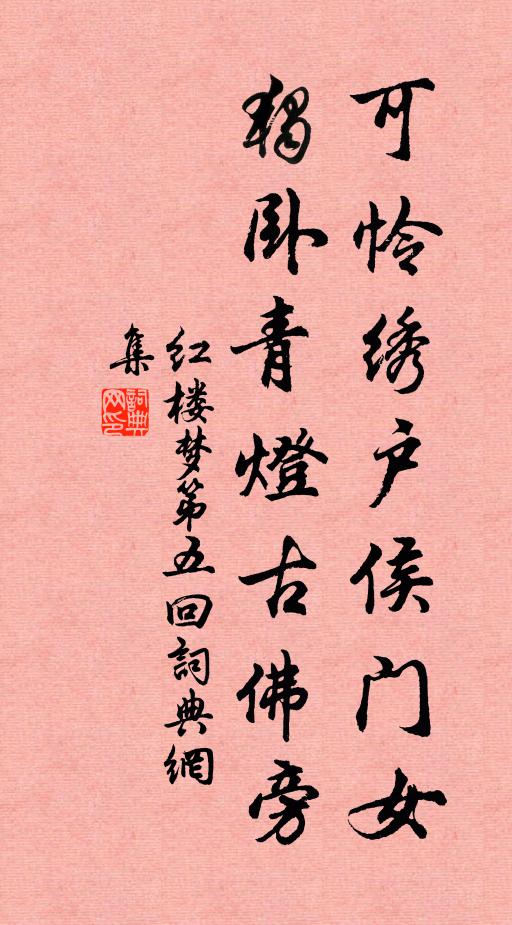 可怜绣户侯门女
獨卧青燈古佛旁
红楼梦第五回詞典網
集
詞典
网印